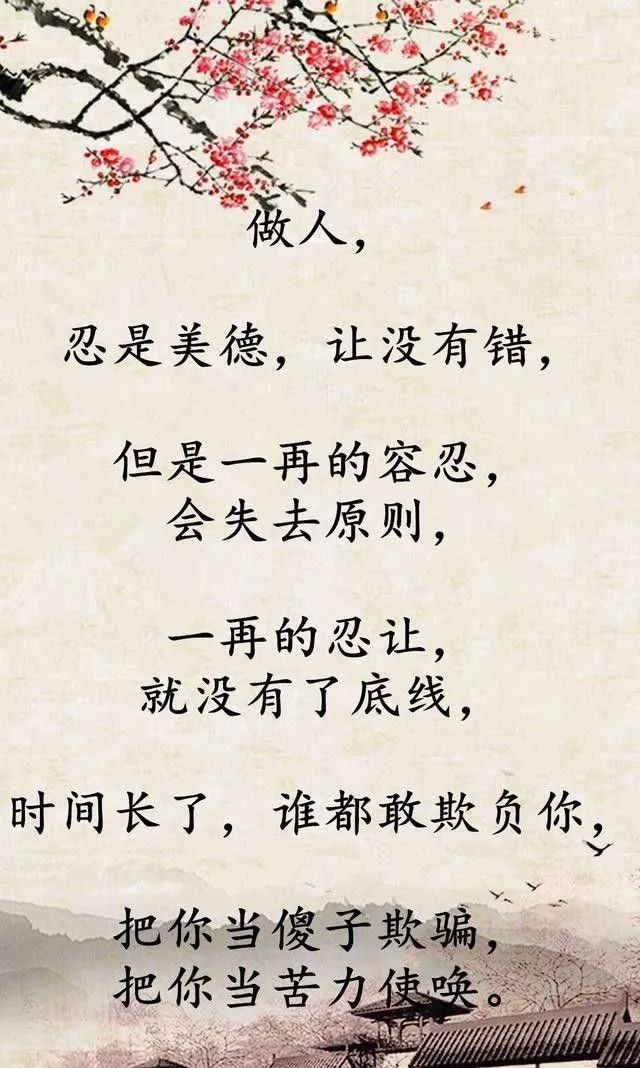 做人，
忍是美德，让没有错，
但是一再的容忍，
会失去原则，
一再的忍让，
就没有了底线，
时间长了，谁都敢欺负你，
把你当傻子欺骗，
把你当苦力使唤。